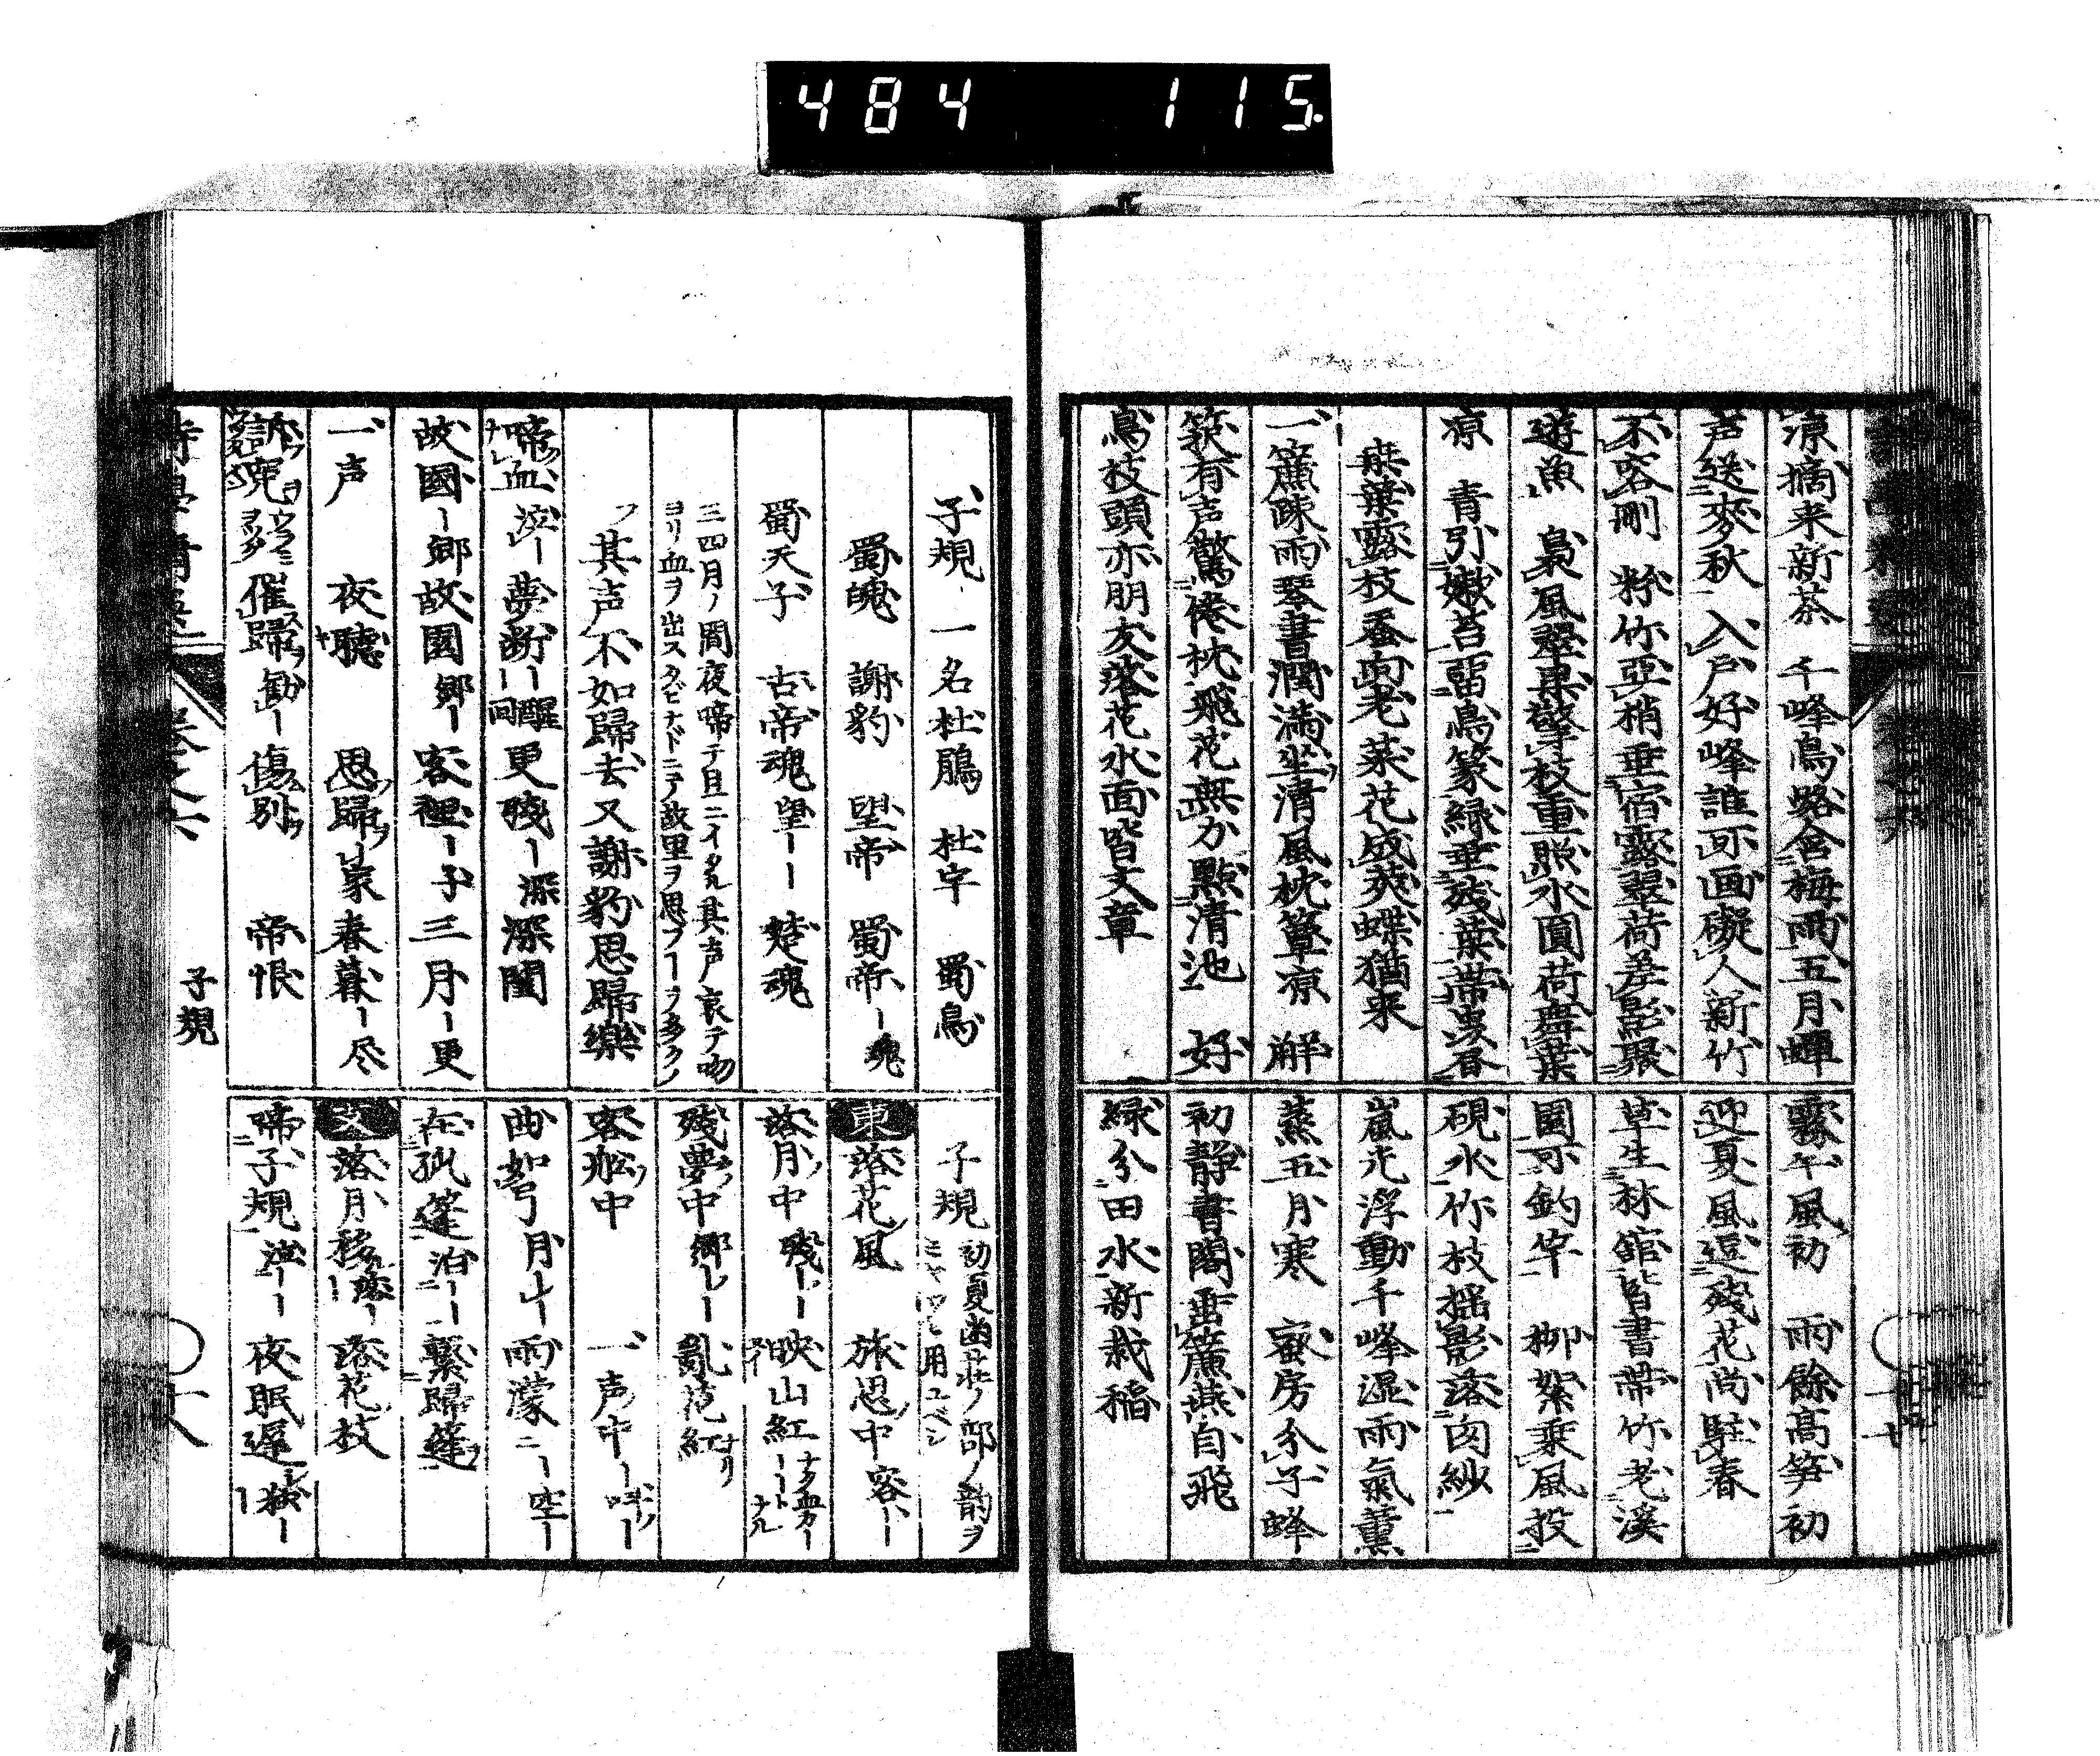 484 115
涼摘来新茶 千峰鳥路含梅雨五月蝉
声送麥秋 入戸好峰誰可画礙人新竹
不容刪 粉竹亞梢垂宿露翠荷差影聚
遊魚 裊風翠果擎枝重照水圓荷舞葉
凉 青引嫩苔留鳥篆緑垂残葉帯虫書
桑葉露枝蚕向老菜花成莢蝶猶来
一簾疎雨琴書潤満坐清風枕簟凉 解
籜有声驚倦枕飛花無力點清池 好
鳥枝頭亦朋友落花水面皆文章
霧午風初 雨餘高笋初
迎夏風逗残花尚駐春
草生林館皆書帯竹老溪
園可釣竿 柳絮乗風投
硯水竹枝揺影落囱紗
嵐光浮動千峰湿雨氣薫
蒸五月寒 蜜房分子蜂
初静書閣垂簾燕自飛
緑分田水新栽稲
子規 一名杜鵑 杜宇 蜀鳥
蜀魄 謝豹 望帝 蜀帝ー魂
蜀天子 古帝魂望ーー 楚魂
三四月ノ間夜啼テ旦ニイタル其声哀テ吻
ヨリ血ヲ出スタビナドニテ故里ヲ思フーヲ多クノ
フ其声不如歸去又謝豹思歸樂
啼血 泣ー夢断ー醒回更残ー深深閨
故國ー郷故園郷ー客裡ー子三月ー更
一声 夜聴 思歸ー家春暮ー尽
訴寃 催歸勧ー傷別 帝恨
子規
子規 初夏 部ノ韵ヲ用ユベシ
東落花風 旅思中客ー
落月中残ー映山紅
残夢中郷ー乱花紅
客舩中 一声中ー
曲如弓月ー 雨濛ニー空ー
在孤篷泊ー繋歸篷
支落月移 落花枝
啼子規泣ー夜眠遲